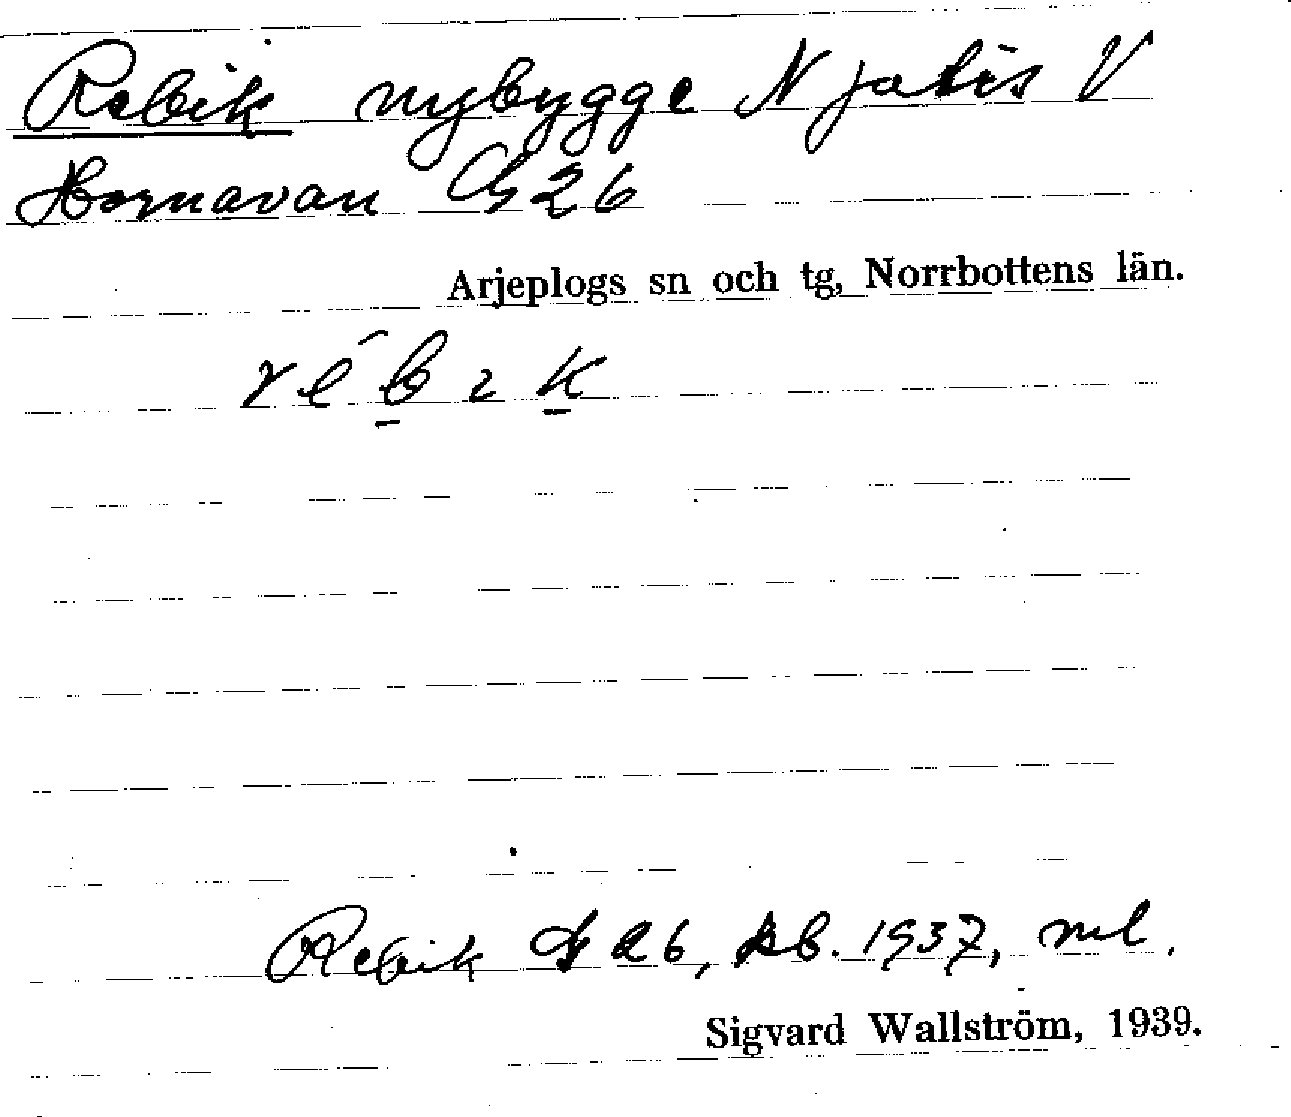 Rebik nybygge Njatis V
Hornavan G 26
Arjeplogs sn och tg, Norrbottens län.
ré b̲ ɩ k̲
Rebik G 26, kb. 1937, ml.
Sigvard Wallström, 1939.